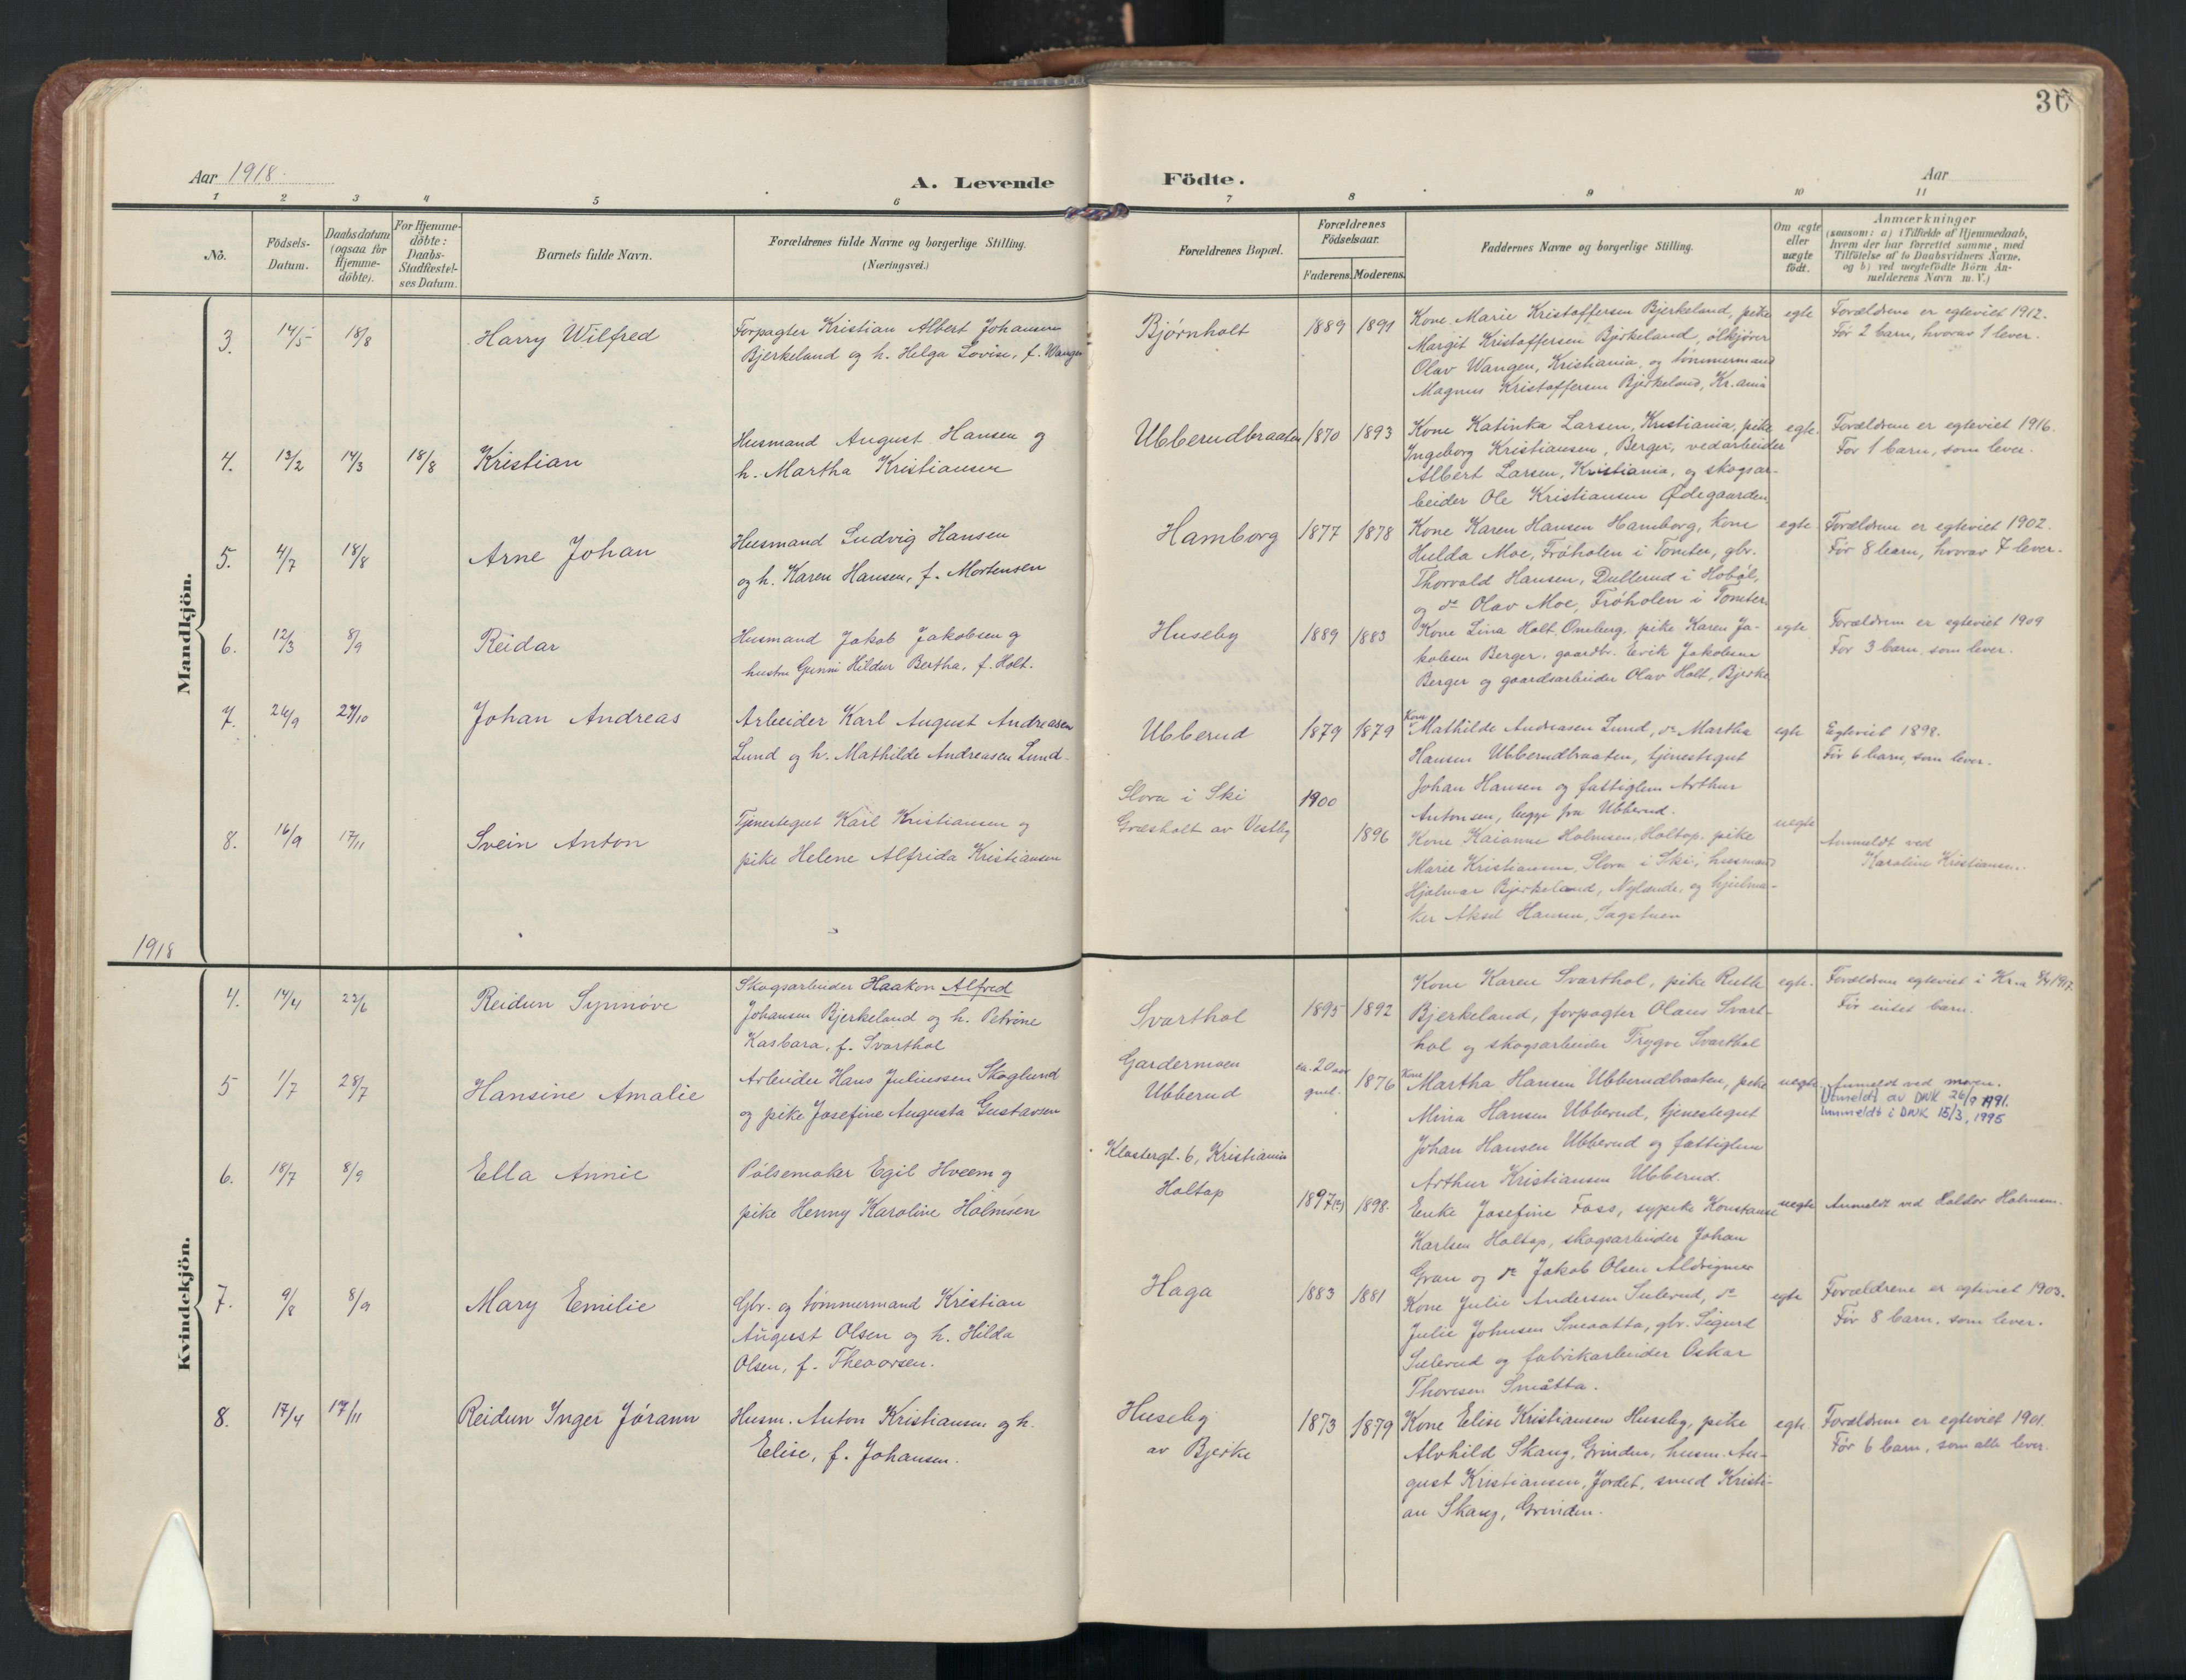 36
Aar 1918.
A. Levende Födte.
Aar
1 2 3 4 5 6 7 8 9 10 11
No.
Födsels-
Datum.
Daabsdatum
(ogsaa for
Hjemme-
döbte).
For Hjemme-
döbte:
Daabs-
Stadfæstel-
ses Datum.
Barnets fulde Navn.
Forældrenes fulde Navne og borgerlige Stilling.
(Næringsvei.)
Forældrenes Bopæl.
Forældrenes
Födselsaar.
Faderens. Moderens.
Faddernes Navne og borgerlige Stilling.
Om ægte
eller
uægte
födt.
Anmærkninger
(saasom: a) i Tilfælde af Hjemmedaab,
hvem der har forrettet samme, med
Tilföielse af to Daabsvidners Navne,
og b) ved uægtefödte Börn An-
melderens Navn m. V.)
Mandkjön.
3. 14/5 18/8 Harry Wilfred
Forpagter Kristian Albert Johansen
Bjerkeland og h. Helga Lovise, f. Wangen
Bjørnholt
1889 1891
Kone Marie Kristoffersen Bjerkeland, pike
Margit Kristoffersen Bjerkeland, ölkjörer
Olav Wangen, Kristiania, og tömmermand
Magnus Kristoffersen Bjerkeland, Kr.ania
egte
Forældrene er egteviet 1912.
Før 2 barn, hvorav 1 lever.
4. 13/2 14/3 18/8 Kristian
Husmand August Hansen og
h. Martha Kristiansen
Ubberudbraaten
1870 1893
Kone Katinka Larsen, Kristiania, pike
Ingeborg Kristiansen, Berger, vedarbeider
Albert Larsen, Kristiania, og skogsar-
beider Ole Kristiansen Ødegaarden.
egte.
Forældrene er egteviet 1916.
Før 1 barn, som lever.
5. 4/7 18/8 Arne Johan
Husmand Ludvig Hansen
og h. Karen Hansen, f. Mortensen
Hamborg
1877 1878
Kone Karen Hansen Hamborg, kone
Hulda Moe, Fröholen i Tomter, gbr.
Thorvald Hansen, Dullerud i Hoböl,
og do Olav Moe, Fröholen i Tomter.
egte
Forældrene er egteviet 1902.
Før 8 barn, hvorav 7 lever.
6. 12/3 8/9 Reidar
Husmand Jakob Jakobsen og
hustru Gunni Hildur Bertha, f. Holt.
Huseby
1889 1883
Kone Lina Holt, Oneberg, pike Karen Ja-
kobsen Berger, gaardbr. Erik Jakobsen
Berger og gaardsarbeider Olav Holt, Bjerke
egte
Forældrene er egteviet 1909
Før 3 barn, som lever.
7. 24/9 27/10 Johan Andreas
Arbeider Karl August Andreasen
Lund og h. Mathilde Andreasen Lund.
Ubberud
1879 1879
Kone Mathilde Andreasen Lund, do Martha
Hansen Ubberudbraaten, tjenestegut
Johan Hansen og fattiglem Arthur
Antonsen, begge fra Ubberud.
egte
Egteviet 1898.
Før 6 barn, som lever.
8. 16/9 17/11 Svein Anton
Tjenestegut Karl Kristiansen og
pike Helene Alfrida Kristiansen
Slora i Ski
Græsholt av Vestby
1900
1896
Kone Kaianne Holmsen, Holtop, pike
Marie Kristiansen, Slora i Ski, husmand
Hjalmar Bjerkeland, Nylænde, og hjulma-
ker Aksel Hansen, Sagstuen
uegte
Anmeldt ved
Karoline Kristiansen.
1918
Kvindekjön.
4. 14/4 23/6 Reidun Synnöve
Skogsarbeider Haakon Alfred
Johansen Bjerkeland og h. Petrine
Kasbara, f. Svarthol
Svarthol
1895 1892
Kone Karen Svarthol, pike Ruth
Bjerkeland, forpagter Olaus Svart-
hol og skogsarbeider Trygve Svarthol
egte.
Forældrene egteviet i Kr.a 1917.
Før intet barn.
5 1/7 28/7 Hansine Amalie
Arbeider Hans Juliussen Skoglund
og pike Josefine Augusta Gustavsen
Gardermoen
Ubberud
ca. 20 aar
gml.
1876
Kone Martha Hansen Ubberudbraaten, pike
Mina Hansen Ubberud, tjenestegut
Johan Hansen Ubberud og fattiglem
Arthur Kristiansen Ubberud.
uegte
Anmeldt ved moren.
Utmeldt av DNK 26/9 1991.
Innmeldt i DNK 15/3, 1995
6. 18/7 8/9 Ella Annie
Pölsemaker Egil Hveem og
pike Henny Karoline Holmsen
Klostergt. 6, Kristiania
Holtop
1897(?) 1898.
Enke Josefine Foss, sypike Konstanse
Karlsen Holtop, skogsarbeider Johan
Gran og do Jakob Olsen Aldrigmer
uegte
Anmeldt ved Haldor Holmsen.
7. 9/8 8/9 Mary Emilie
Gbr. og tömmermand Kristian
August Olsen og h. Hilda
Olsen, f. Theoorsen.
Haga
1883 1881
Kone Julie Andersen Sulerud, do
Julie Johnsen Smaatta, gbr. Sigurd
Sulerud og fabrikarbeider Oskar
Thoresen Småtta.
egte
Forældrene er egteviet 1903.
Før 8 barn, som lever.
8. 17/4 17/11 Reidun Inger Jörann
Husm. Anton Kristiansen og h.
Elise, f. Johansen.
Huseby
av Bjerke
1873 1879
Kone Elise Kristiansen Huseby, pike
Alvhild Skaug, Grinden, husm. Au-
gust Kristiansen, Jordet, smed Kristi-
an Skaug, Grinden.
egte.
Forældrene er egteviet 1901.
Før 6 barn, som alle lever.